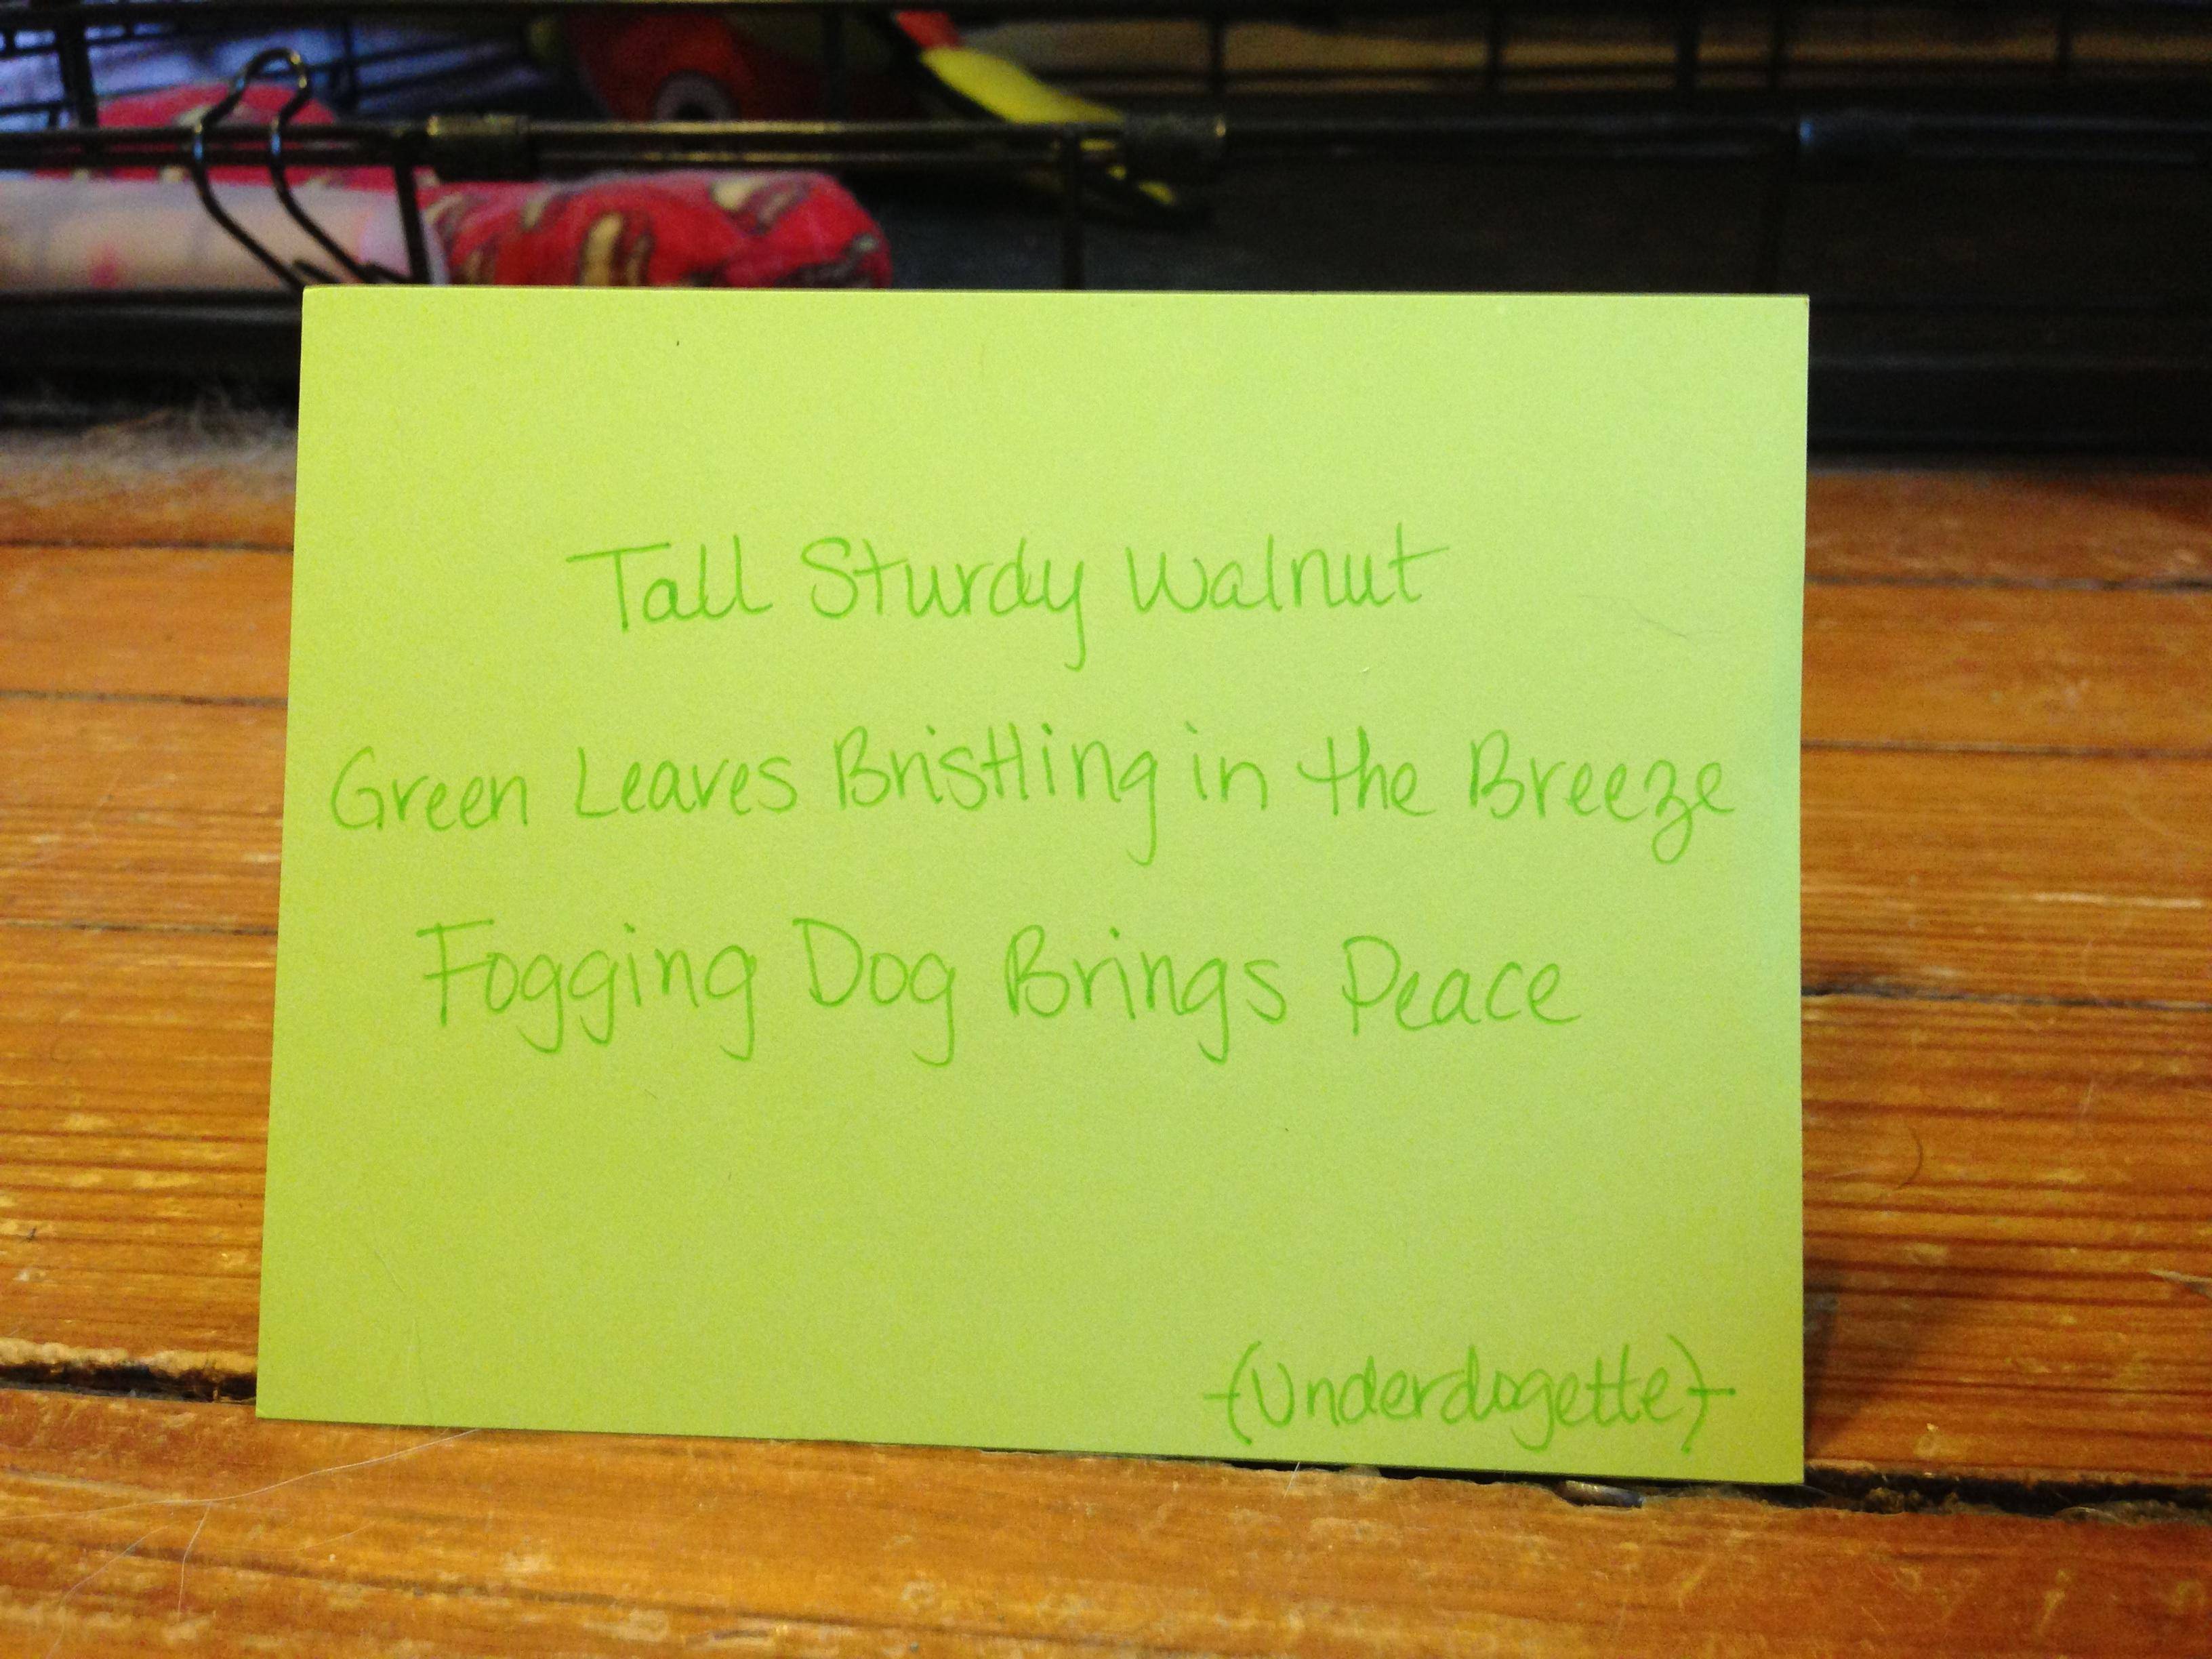 Tall Sturdy Walnut
Green Leaves Bristling in the Breeze
Fogging Dog Brings Peace
-(Underdogette)-